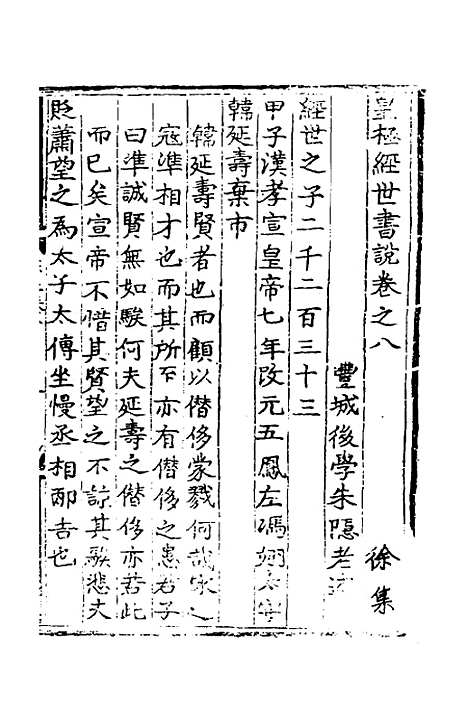 皇極經世書說卷之八
徐集
豐城後學朱隱老
經世之子二千二百三十三
甲子漢孝宣皇帝七年改元五鳳左馮翊
韓延壽棄市
韓延壽賢者也而顧以僭侈蒙戮何哉宋之
寇準相才也而其所下亦有僭侈之患君子
曰準誠賢無如騃何夫延壽之僭侈亦若此
而已矣宣帝不惜其賢望之不諒其騃悲夫
貶蕭望之為太子太傅坐慢丞相邴吉也